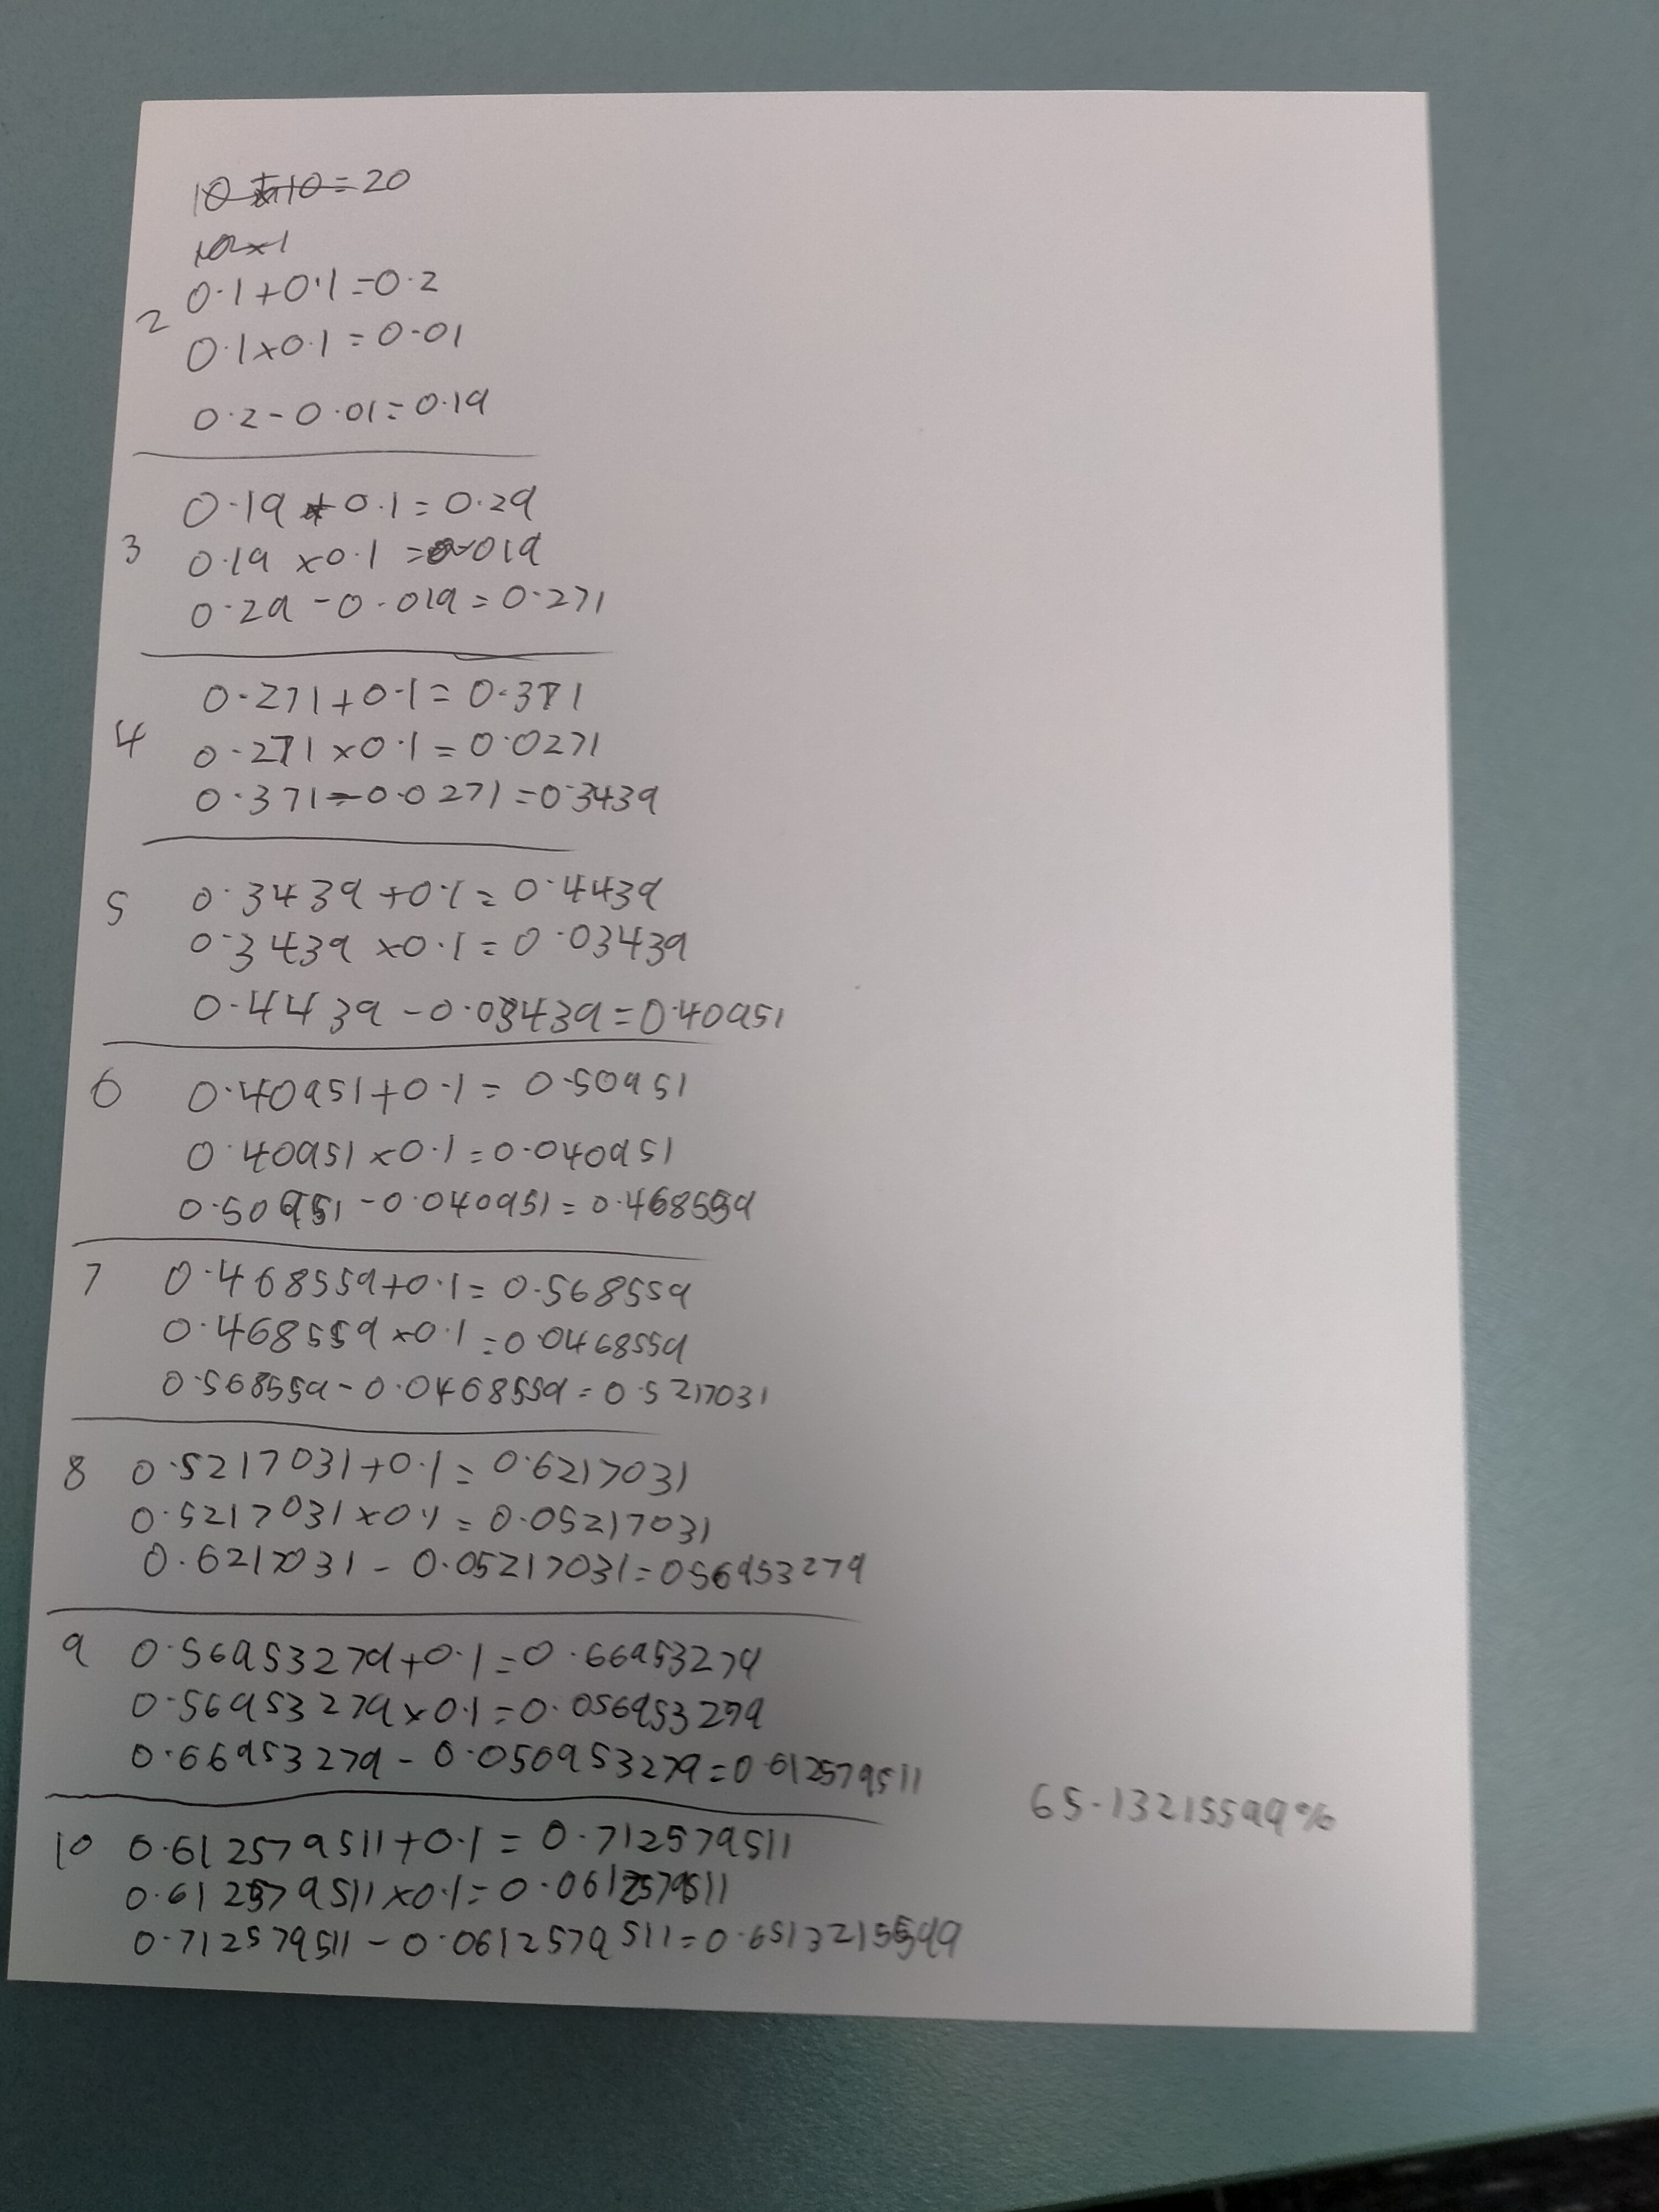 10 + 10 = 20
10×1
0.1+0.1=0.2
2
0.1×0.1=0.01
0.2-0.01=0.19
0.19+0.1=0.29
3
0.19×0.1=0.019
0.29-0.019=0.271
0.271+0.1=0.371
4
0.271×0.1=0.0271
0.371-0.0271=0.3439
5 0.3439+0.1=0.4439
0.3439×0.1=0.03439
0.4439-0.03439=0.40951
6 0.40951+0.1=0.50951
0.40951×0.1=0.040951
0.50951-0.040951=0.468559
7 0.468559+0.1=0.568559
0.468559×0.1=0.0468559
0.568559-0.0468559=0.5217031
8 0.5217031+0.1=0.6217031
0.5217031×0.1=0.05217031
0.6217031-0.05217031=0.56953279
9 0.56953279+0.1=0.66953279
0.56953279×0.1=0.056953279
0.66953279-0.056953279=0.612579511
65.13215599%
10 0.612579511+0.1=0.712579511
0.612579511×0.1=0.0612579511
0.712579511-0.0612579511=0.6513215599